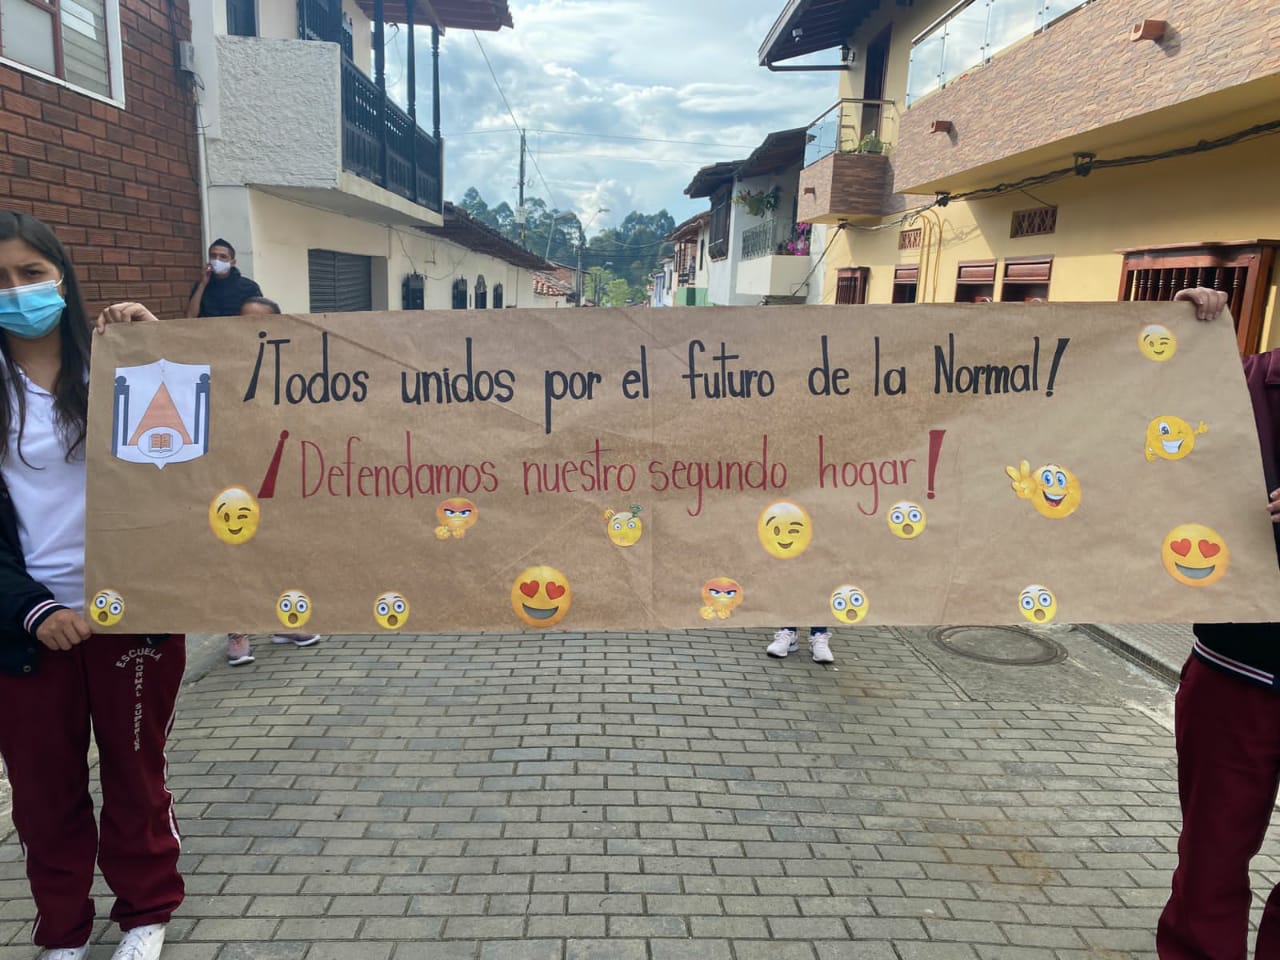 ¡Todos unidos por el futuro de la Normal!
¡Defendamos nuestro segundo hogar!
ESCUELA
NORMAL SUPERIOR